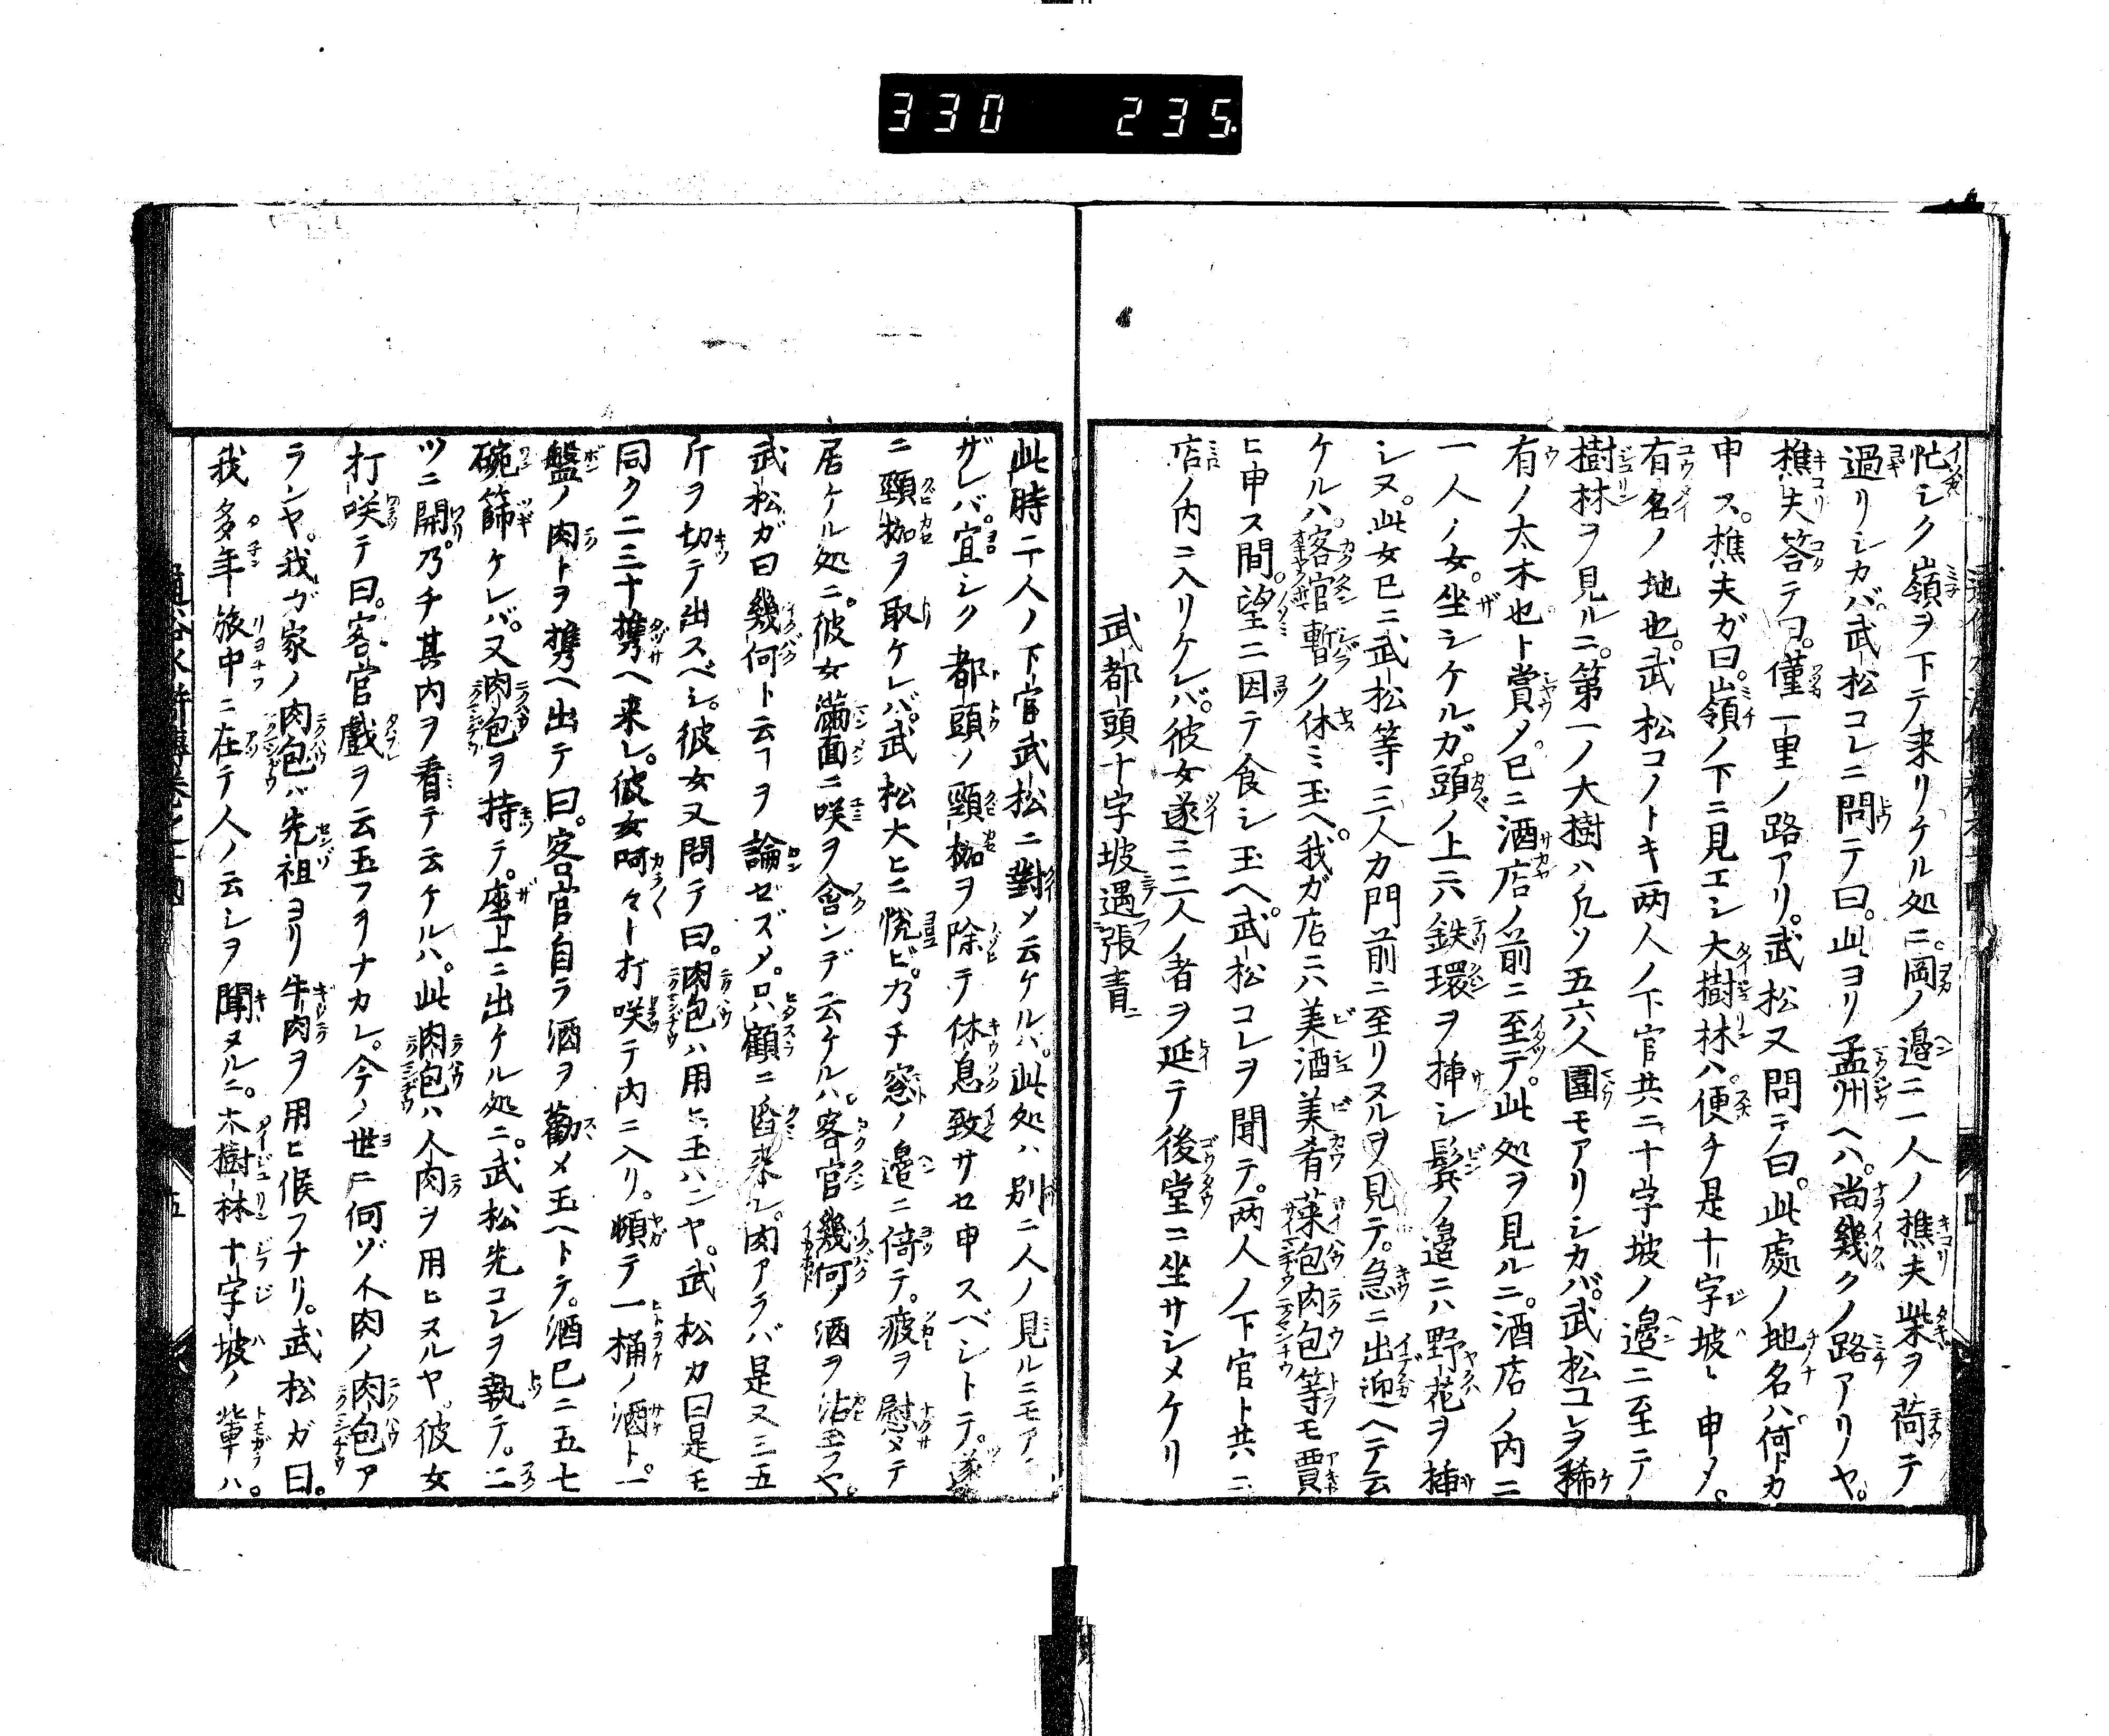 330 235.
忙シク嶺ヲ下テ来リケル処ニ。岡ノ邉ニ一人ノ樵夫柴ヲ荷テ
過リシカバ。武松コレニ問テ曰。此ヨリ孟州ヘハ。尚幾クノ路アリヤ。
樵夫答テ曰。僅一里ノ路アリ。武松又問テ曰。此處ノ地名ハ何トカ
申ス。樵夫ガ曰。嶺ノ下ニ見エシ大樹林ハ。便チ是十字坡ト申メ。
有名ノ地也。武松コノトキ両人ノ下官共ニ十字坡ノ邉ニ至テ
樹林ヲ見ルニ。第一ノ大樹ハ凡ソ五六人圍モアリシカバ。武松コレヲ稀
有ノ大木也ト賞メ。已ニ酒店ノ前ニ至テ。此処ヲ見ルニ。酒店ノ内ニ
一人ノ女。坐シケルガ。頭ノ上ニハ鉄環ヲ挿シ鬂ノ邉ニハ野花ヲ挿
シヌ。此女已ニ武松等三人カ門前ニ至リヌルヲ見テ。急ニ出迎ヘテ云
ケルハ。客官暫ク休ミ玉ヘ。我ガ店ニハ美酒美肴菜包肉包等モ賈
ヒ申ス間。望ニ因テ食シ玉ヘ。武松コレヲ聞テ。両人ノ下官ト共ニ
店ノ内ニ入リケレバ。彼女遂ニ三人ノ者ヲ延テ後堂ニ坐サシメケリ
武都頭十字坡遇張青
此時二人ノ下官武松ニ對メ云ケルハ。此処ハ別ニ人ノ見ルニモアラ
ザレバ。宜シク都頭ノ頸枷ヲ除テ休息致サセ申スベシトテ。遂
ニ頸枷ヲ取ケレバ。武松大ヒニ悦ビ。乃チ窓ノ邉ニ倚テ。疲ヲ慰メテ
居ケル処ニ。彼女滿面ニ咲ヲ含ンデ云ケルハ。客官幾何ノ酒ヲ沽玉フヤ。
武松ガ曰幾何ト云フヲ論ゼズメ。只顧ニ酌来レ。肉アラバ是又三五
斤ヲ切テ出スベシ。彼女又問テ曰。肉包ハ用ヒ玉ハンヤ。武松カ曰是モ
同ク二三十携ヘ来レ。彼女呵々ト打咲テ内ニ入リ。頓テ一桶ノ酒ト。一
盤ノ肉トヲ携ヘ出テ曰。客官自ラ酒ヲ勸メ玉ヘトテ。酒已ニ五七
碗篩ケレバ。又肉包ヲ持テ。座上ニ出ケル処ニ。武松先コレヲ執テ。二
ツニ開。乃チ其内ヲ看テ云ケルハ。此肉包ハ人肉ヲ用ヒヌルヤ。彼女
打咲テ曰。客官戲ヲ云玉フヲナカレ。今ノ世ニ何ゾ人肉ノ肉包ア
ランヤ。我ガ家ノ肉包ハ先祖ヨリ牛肉ヲ用ヒ候フナリ。武松ガ曰。
我多年旅中ニ在テ人ノ云シヲ聞ヌルニ。大樹林十字坡ノ輩ハ。